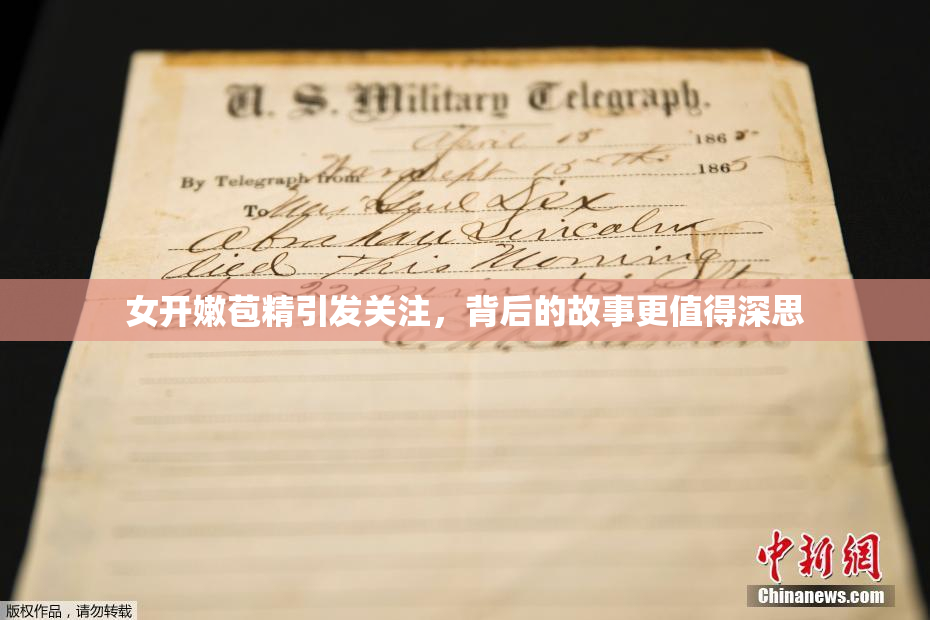 U. S. Military Telegraph.
April 15 1865
By Telegraph from War Dept 15th 1865
To Maj Genl Dix
Abraham Lincoln
died This Morning
at 22 minutes after
女开嫩苞精引发关注，背后的故事更值得深思
E. M. Stanton
中新网
Chinanews.com
版权作品，请勿转载